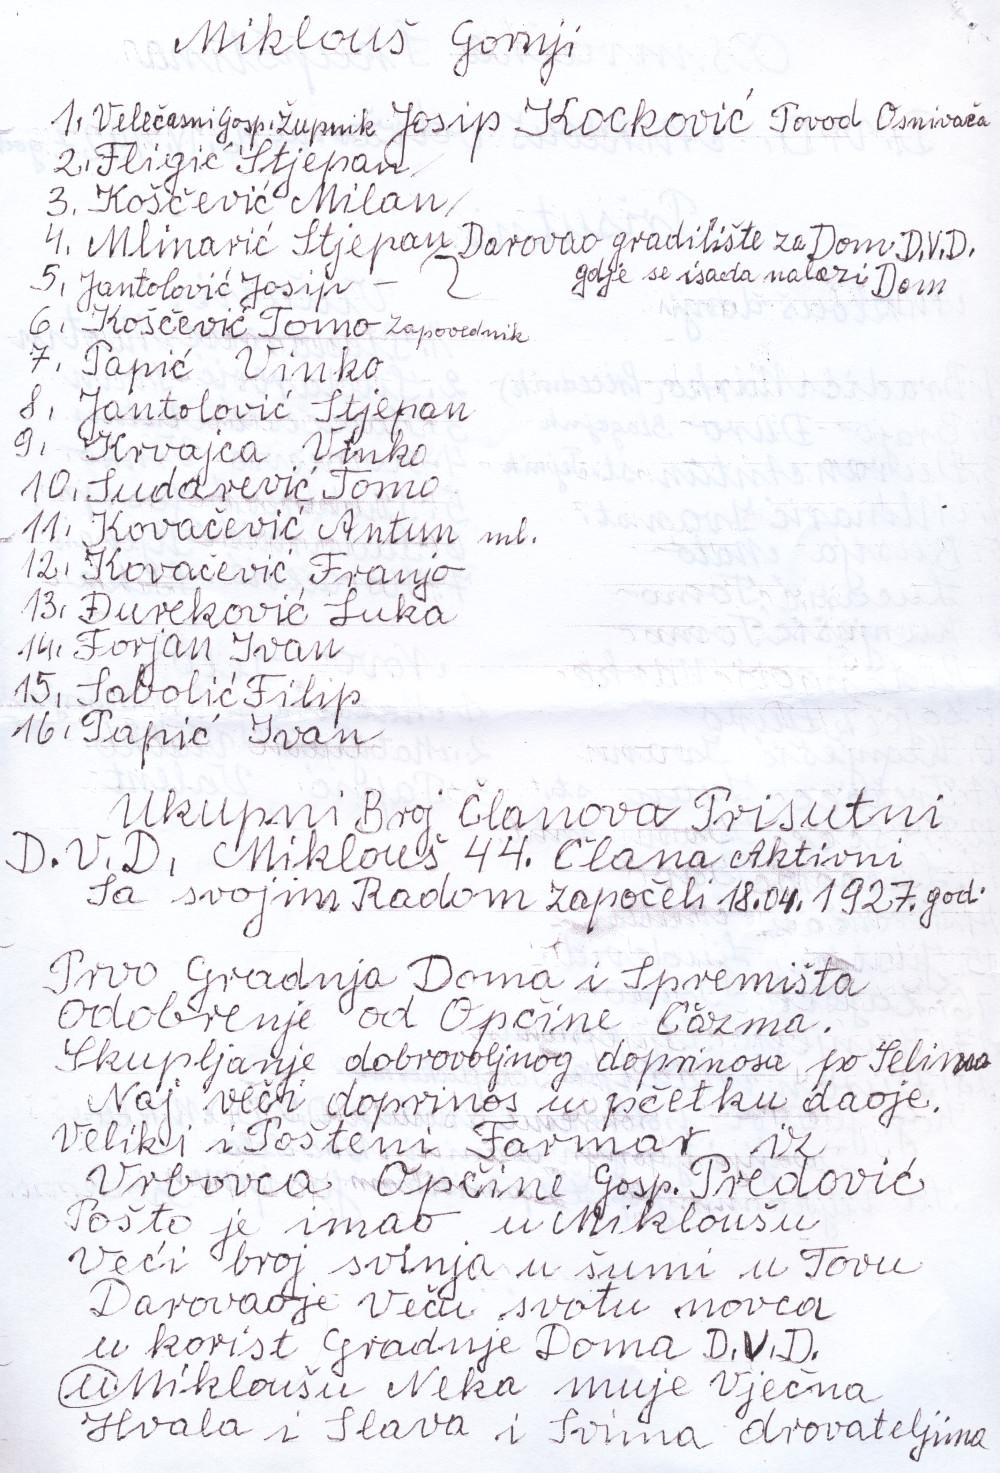 Miklouš Gornji
1. Velečasni Gosp. Župnik Josip Kocković Povod Osnivača
2. Fligić Stjepan
3. Koščević Milan
4. Mlinarić Stjepan Darovao gradilište za Dom D.V.D.
5. Jantolović Josip - gdje se i sada nalazi Dom
6. Koščević Tomo Zapovednik
7. Papić Vinko
8. Jantolović Stjepan
9. Krvajca Vinko
10. Sudarević Tomo
11. Kovačević Antun ml.
12. Kovačević Franjo
13. Đureković Luka
14. Forjan Ivan
15. Sabolić Filip
16. Papić Ivan
Ukupni Broj Članova Prisutni
D.V.D. Miklouš 44. Člana Aktivni
Sa svojim Radom započeli 18.04.1927. god.
Prvo Gradnja Doma i Spremišta
Odobrenje od Općine Čazma.
Skupljanje dobrovoljnog doprinosa po Selima
Naj veči doprinos u pčetku daoje.
Veliki i Pošteni Farmar iz
Vrbovca Općine Gosp. Predović
Pošto je imao u Mikloušu
Veći broj svinja u šumi u Tovu
Darovaoje Veču svotu novca
u korist Gradnje Doma D.V.D.
u Mikloušu Neka muje Vječna
Hvala i Slava i Svima drovateljima